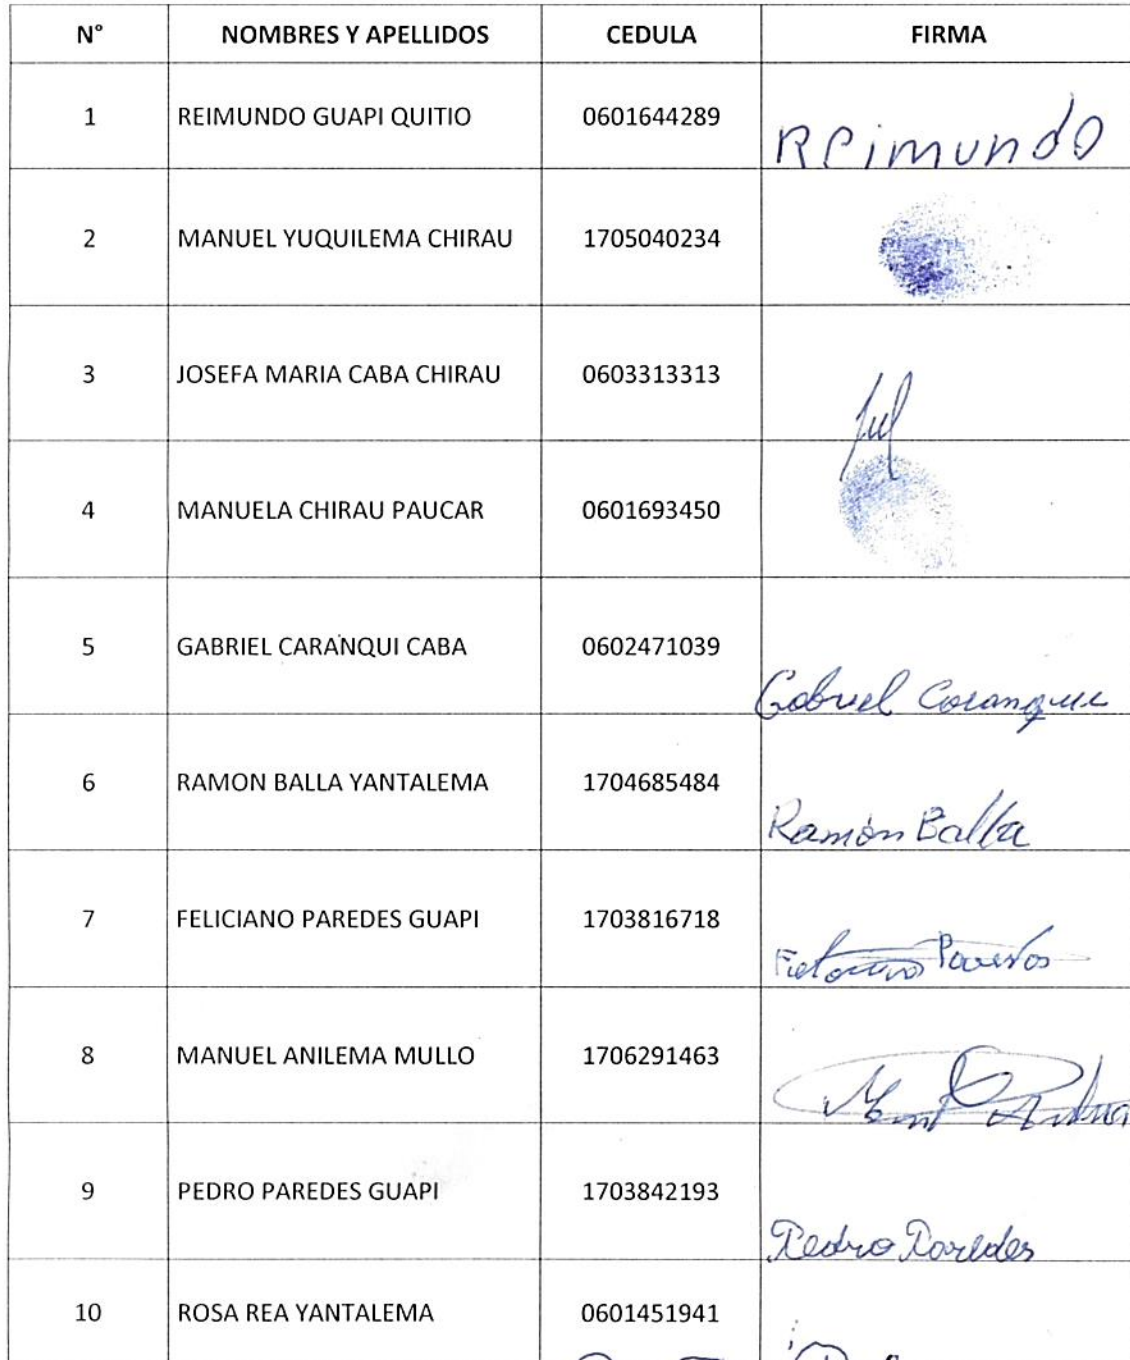 N° NOMBRES Y APELLIDOS CEDULA FIRMA
1 REIMUNDO GUAPI QUITIO 0601644289 Reimundo
2 MANUEL YUQUILEMA CHIRAU 1705040234
3 JOSEFA MARIA CABA CHIRAU 0603313313
4 MANUELA CHIRAU PAUCAR 0601693450
5 GABRIEL CARANQUI CABA 0602471039 Gabriel Caranqui
6 RAMON BALLA YANTALEMA 1704685484 Ramón Balla
7 FELICIANO PAREDES GUAPI 1703816718
8 MANUEL ANILEMA MULLO 1706291463
9 PEDRO PAREDES GUAPI 1703842193 Pedro Paredes
10 ROSA REA YANTALEMA 0601451941